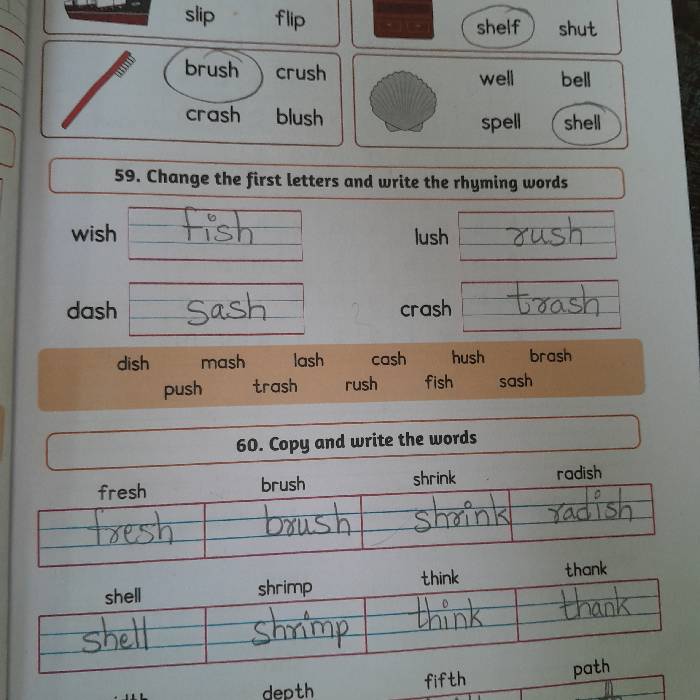 slip flip
shelf shut
brush crush
well bell
crash blush
spell shell
59. Change the first letters and write the rhyming words
wish fish lush rush
dash sash crash trash
dish mash lash cash hush brash
push trash rush fish sash
60. Copy and write the words
fresh brush shrink radish
fresh brush shrink radish
shell shrimp think thank
shell shrimp think thank
depth fifth path